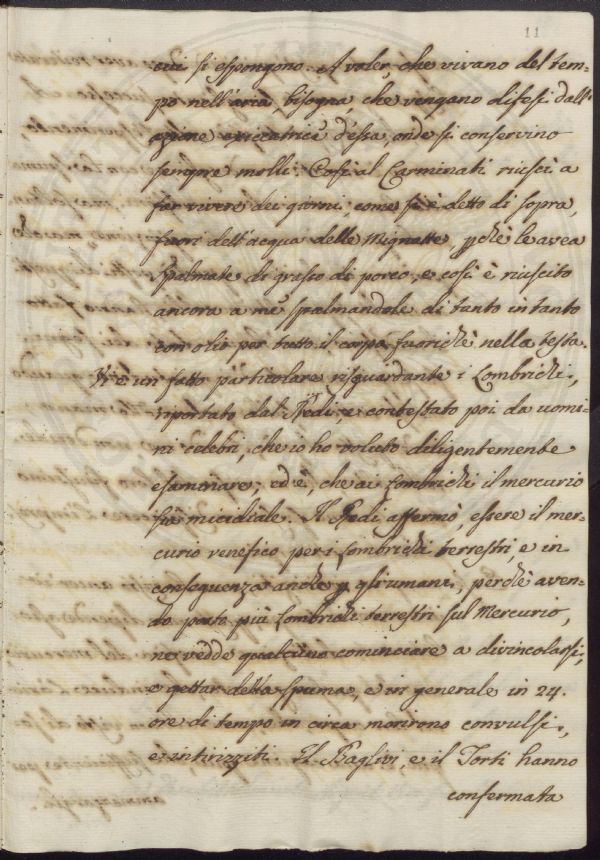 11
cui si espongono. A voler, che vivano del tem-
po nell'aria, bisogna, che vengano difesi dall'
azione essiccatrice d'essa, onde si conservino
sempre molli. Così al Carminati riuscì a
far vivere dei giorni, come si è detto di sopra,
fuori dell'acqua delle Mignatte, pchè le avea
spalmate di grasso di porco, e così è riuscito
ancora a me spalmandole di tanto in tanto
con olio per tutto il corpo fuorichè nella testa.
V'è un fatto particolare risguardante i Lombrichi,
riportato dal Redi, e contestato poi da uomi-
ni celebri, che io ho voluto diligentemente
esaminare; ed è, che ai Lombrichi il mercurio
sia micidiale. Il Redi affermò, essere il mer-
curio venefico per i Lombrichi terrestri, e in
conseguenza anche p gli umani, perchè aven-
do posto più Lombrichi terrestri sul Mercurio,
ne vedde qualcuno cominciare a divincolarsi,
e gettar della spuma, e in generale in 24.
ore di tempo in circa morirono convulsi,
e intirizziti. Il Baglivi, e il Torti hanno
confermata